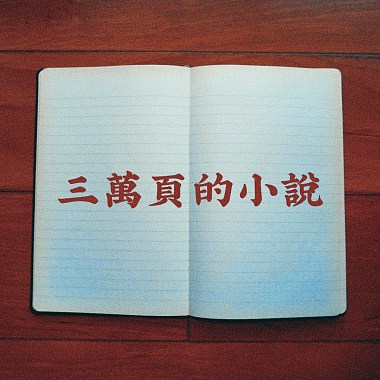 三萬頁的小說